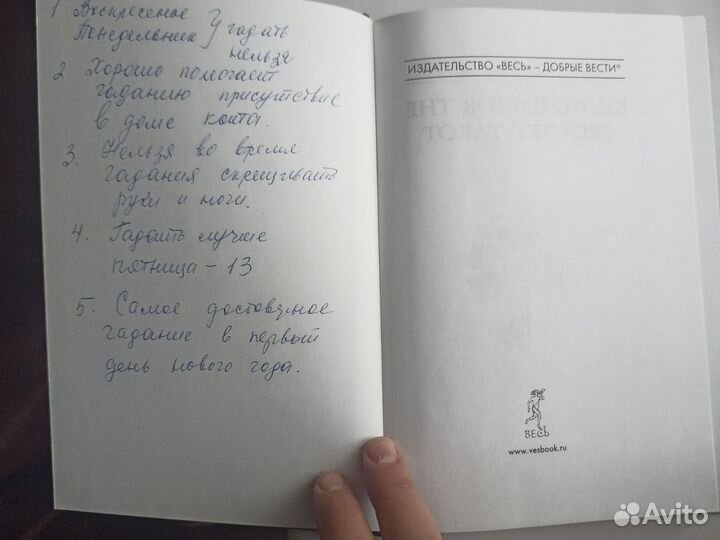 1 Воскресенье
Понедельник } гадать
нельзя
2 Хорошо помогает
гаданию присутствие
в доме кота.
3. Нельзя во время
гадания скрещивать
руки и ноги.
4. Гадать лучше
пятница - 13
5. Самое достоверное
гадание в первый
день нового года.
ИЗДАТЕЛЬСТВО «ВЕСЬ» – ДОБРЫЕ ВЕСТИ®
KEYWORDS FOR THE
CROWLEY TAROT
ВЕСЬ
www.vesbook.ru
Avito